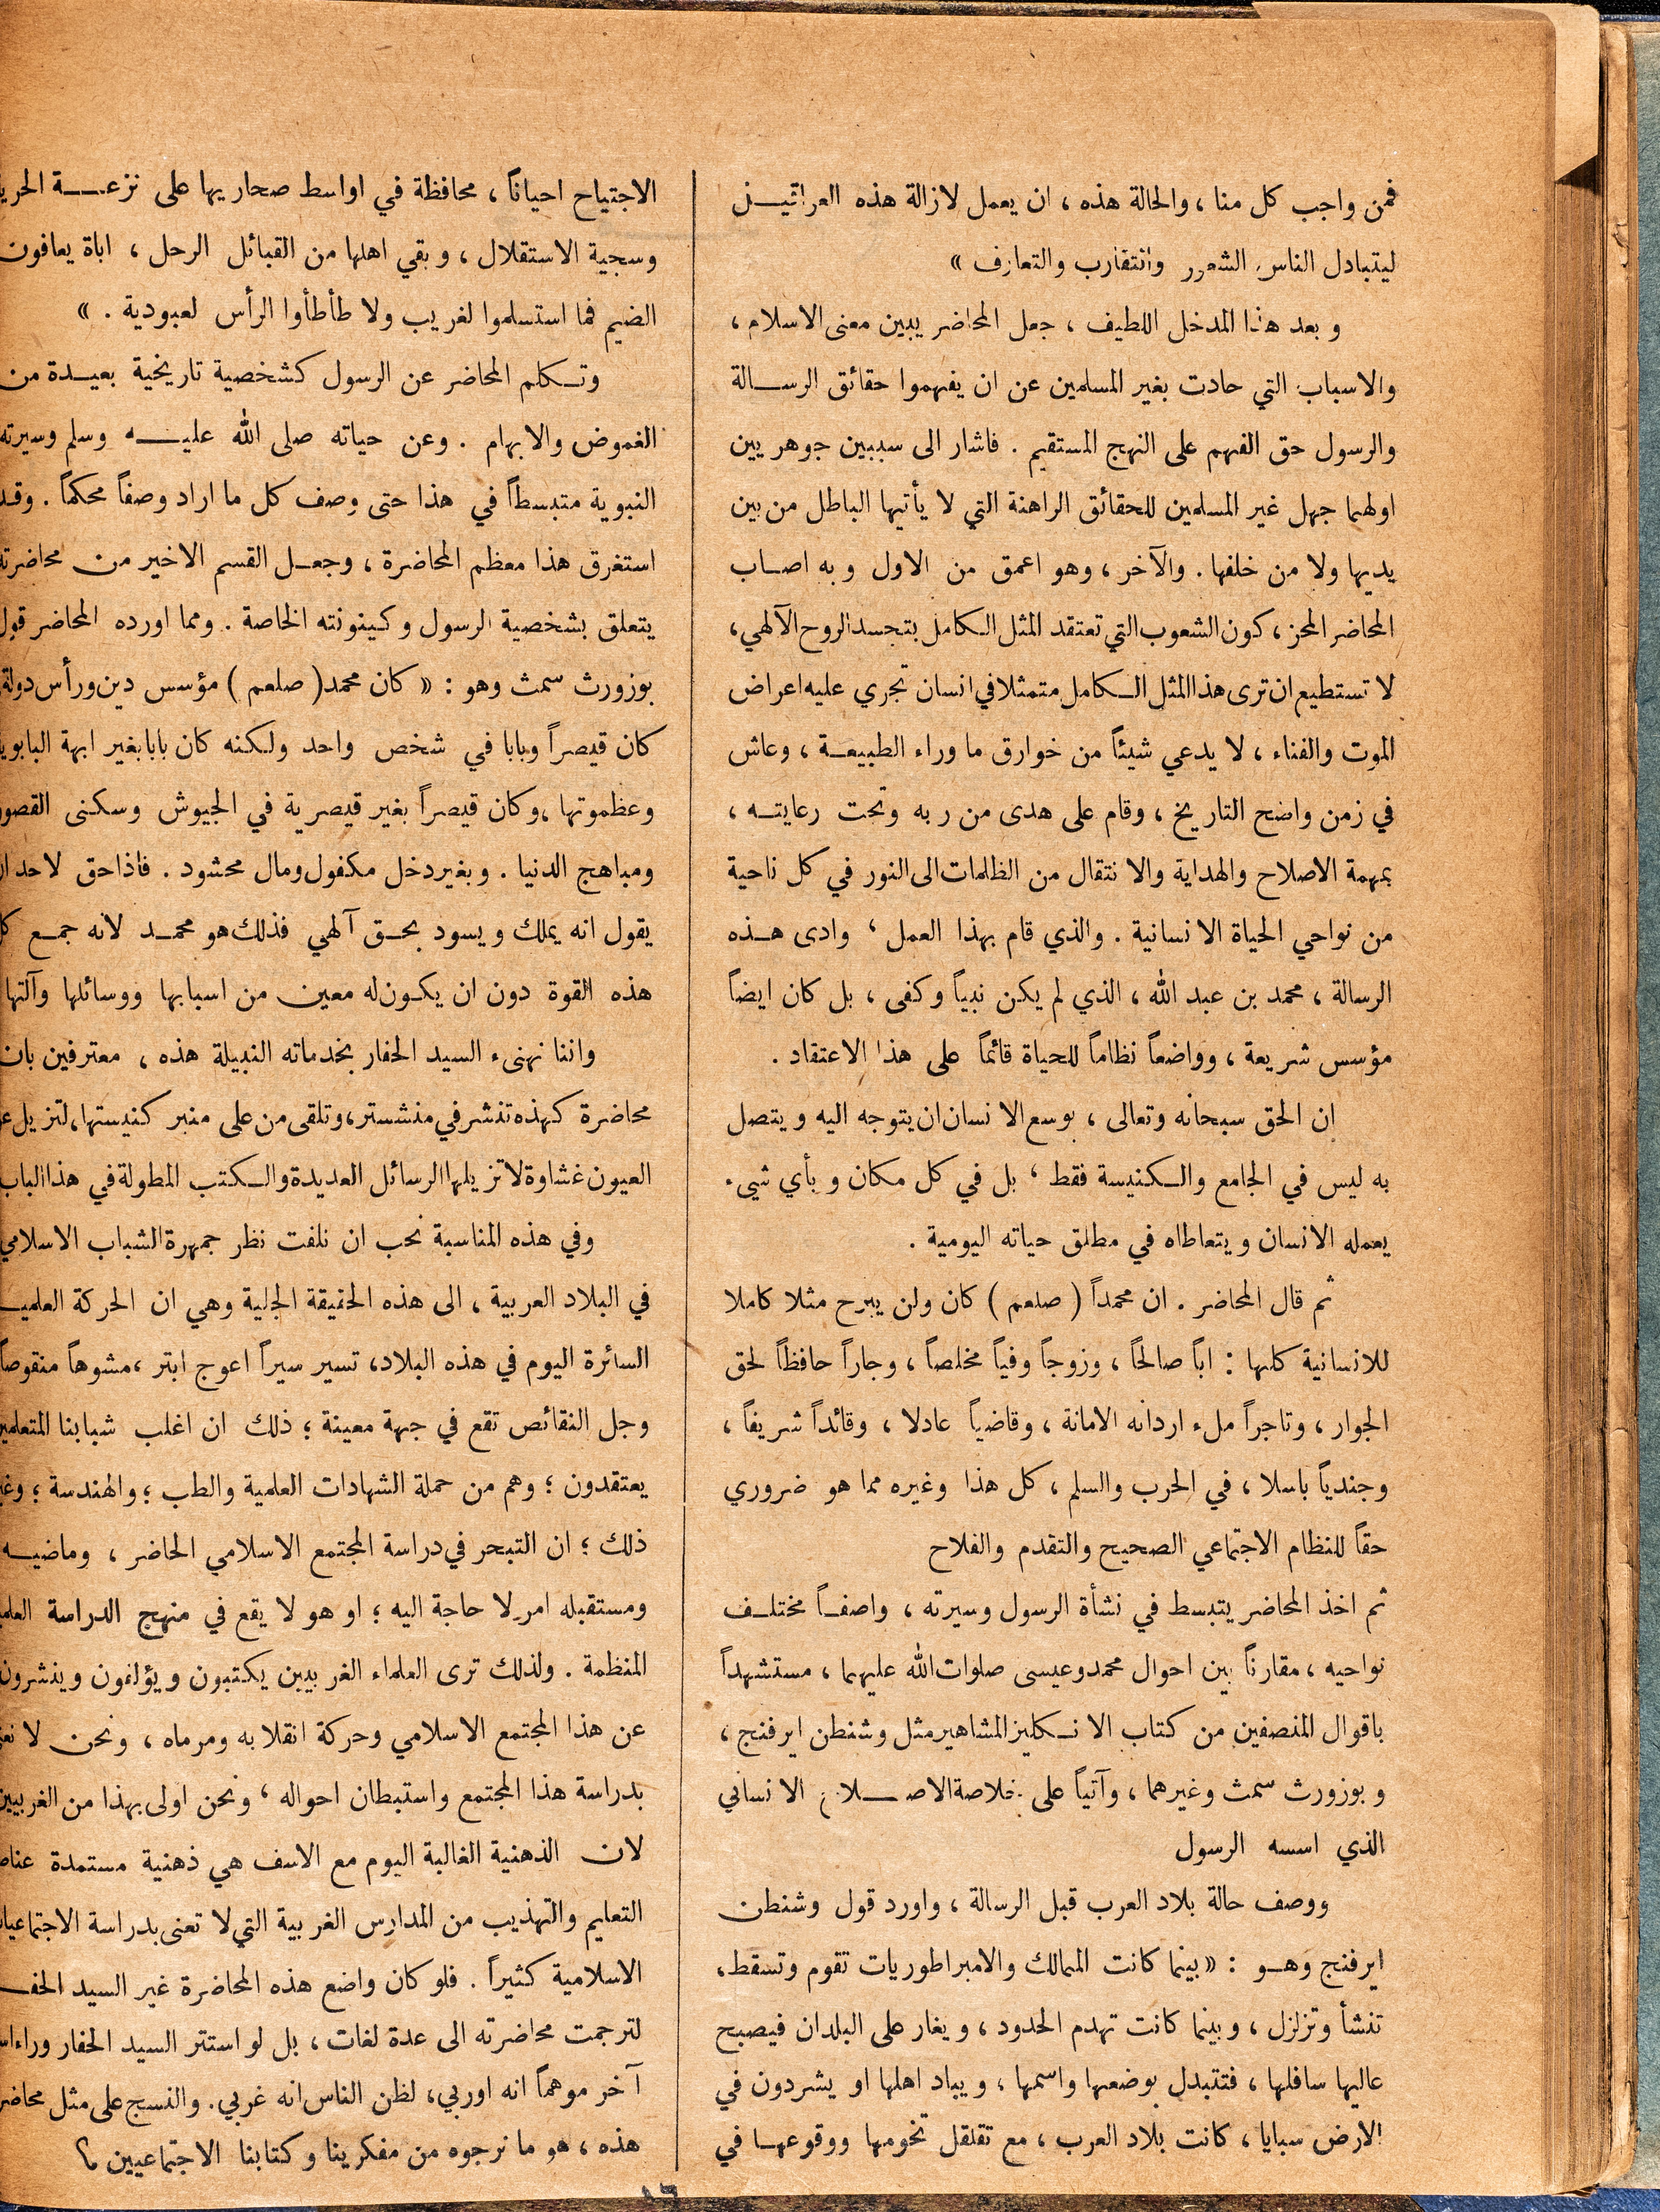 فمن واجب كل منا ، والحالة هذه ، ان يعمل لازالة هذه العراثيــن
ليتبادل الناس الشعور وانتقارب والتعارف »
وبعد هذا المدخل اللطيف ، جعل المحاضر يبين معنى الاسلام ،
والاسباب التي حادت بغير المسلمين عن ان يفهموا حقائق الرســالة
والرسول حق الفهم على النهج المستقيم . فاشار الى سببين جوهريين
اولهما جهل غير المسلمين للحقائق الراهنة التي لا يأتيها الباطل من بين
يديها ولا من خلفها . والآخر ، وهو اعمق من الاول وبه اصــاب
المحاضر المحز ، كون الشعوب التي تعتقد المثل الكامل بتجسد الروح الآلهي ،
لا تستطيع ان ترى هذا المثل الكامل متمثلا في انسان تجري عليه اعراض
الموت والفناء ، لا يدعي شيئاً من خوارق ما وراء الطبيعــة ، وعاش
في زمن واضح التاريخ ، وقام على هدى من ربه وتحت رعايتــه ،
بمهمة الاصلاح والهداية والانتقال من الظلمات الى النور في كل ناحية
من نواحي الحياة الانسانية . والذي قام بهذا العمل ، وادى هــذه
الرسالة ، محمد بن عبد الله ، الذي لم يكن نبياً وكفى ، بل كان ايضاً
مؤسس شريعة ، وواضعاً نظاماً للحياة قائماً على هذا الاعتقاد .
ان الحق سبحانه وتعالى ، بوسع الانسان ان يتوجه اليه ويتصل
به ليس في الجامع والكنيسة فقط ، بل في كل مكان وبأي شيء
يعمله الانسان ويتعاطاه في مطلق حياته اليومية .
ثم قال المحاضر . ان محمداً ( صلعم ) كان ولن يبرح مثلا كاملا
للانسانية كلها : اباً صالحاً ، وزوجاً وفياً مخلصاً ، وجاراً حافظاً لحق
الجوار ، وتاجراً ملء اردانه الامانة ، وقاضياً عادلا ، وقائداً شريفاً ،
وجندياً باسلا ، في الحرب والسلم ، كل هذا وغيره مما هو ضروري
حقاً للنظام الاجتماعي الصحيح والتقدم والفلاح
ثم اخذ المحاضر يتبسط في نشأة الرسول وسيرته ، واصفــاً مختلــف
نواحيه ، مقارناً بين احوال محمد وعيسى صلوات الله عليهما ، مستشهداً
باقوال المنصفين من كتاب الانكليز المشاهير مثل وشنطن ايرفنج ،
وبوزورث سمث وغيرهما ، وآتياً على خلاصة الاصــلاح الانساني
الذي اسسه الرسول
ووصف حالة بلاد العرب قبل الرسالة ، واورد قول وشنطن
ايرفنج وهــو : « بينما كانت الممالك والامبراطوريات تقوم وتسقط ،
تنشأ وتزلزل ، وبينما كانت تهدم الحدود ، ويغار على البلدان فيصبح
عاليها سافلها ، فتتبدل بوضعها واسمها ، ويباد اهلها او يشردون في
الارض سبايا ، كانت بلاد العرب ، مع تقلقل تخومها ووقوعهــا في
الاجتياح احياناً ، محافظة في اواسط صحاريها على نزعــة الحرية
وسجية الاستقلال ، وبقي اهلها من القبائل الرحل ، اباة يعافون
الضيم فما استسلموا لغريب ولا طأطأوا الرأس لعبودية . »
وتكلم المحاضر عن الرسول كشخصية تاريخية بعيــدة من
الغموض والابهام . وعن حياته صلى الله عليــه وسلم وسيرته
النبوية متبسطاً في هذا حتى وصف كل ما اراد وصفاً محكماً . وقد
استغرق هذا معظم المحاضرة ، وجعــل القسم الاخير من محاضرته
يتعلق بشخصية الرسول وكينونته الخاصة . ومما اورده المحاضر قول
بوزورث سمث وهو : « كان محمد ( صلعم ) مؤسس دين ورأس دولة
كان قيصراً وبابا في شخص واحد ولكنه كان بابا بغير ابهة البابوية
وعظموتها ، وكان قيصراً بغير قيصرية في الجيوش وسكنى القصور
ومباهج الدنيا . وبغير دخل مكفول ومال محشود . فاذا حق لاحد ان
يقول انه يملك ويسود بحــق آلهي فذلك هو محمــد لانه جمــع كل
هذه القوة دون ان يكون له معين من اسبابها ووسائلها وآلتها
واننا نهنىء السيد الحفار بخدماته النبيلة هذه ، معترفين بان
محاضرة كهذه تنشر في منشستر ، وتلقى من على منبر كنيستها ، لتزيل عن
العيون غشاوة لا تزيلها الرسائل العديدة والكتب المطولة في هذا الباب
وفي هذه المناسبة نحب ان نلفت نظر جمهرة الشباب الاسلامي
في البلاد العربية ، الى هذه الحقيقة الجلية وهي ان الحركة العلميــ
السائرة اليوم في هذه البلاد ، تسير سيراً اعوج ابتر ، مشوهاً منقوصاً
وجل النقائص تقع في جهة معينة ؛ ذلك ان اغلب شبابنا المتعلمين
يعتقدون ؛ وهم من حملة الشهادات العلمية والطب ؛ والهندسة ؛ وغير
ذلك ؛ ان التبحر في دراسة المجتمع الاسلامي الحاضر ، وماضيــه
ومستقبله امر لا حاجة اليه ؛ او هو لا يقع في منهج الدراسة العلمية
المنظمة . ولذلك ترى العلماء الغربيين يكتبون ويؤلفون وينشرون
عن هذا المجتمع الاسلامي وحركة انقلابه ومرماه ، ونحن لا نعنى
بدراسة هذا المجتمع واستبطان احواله ، ونحن اولى بهذا من الغربيين
لان الذهنية الغالبة اليوم مع الاسف هي ذهنية مستمدة عناصر
التعليم والتهذيب من المدارس الغربية التي لا تعنى بدراسة الاجتماعيات
الاسلامية كثيراً . فلو كان واضع هذه المحاضرة غير السيد الحفــ
لترجمت محاضرته الى عدة لغات ، بل لو استتر السيد الحفار وراء اسم
آخر موهماً انه اوربي ، لظن الناس انه غربي . والنسج على مثل محاضرة
هذه ، هو ما نرجوه من مفكرينا وكتابنا الاجتماعيين ؟